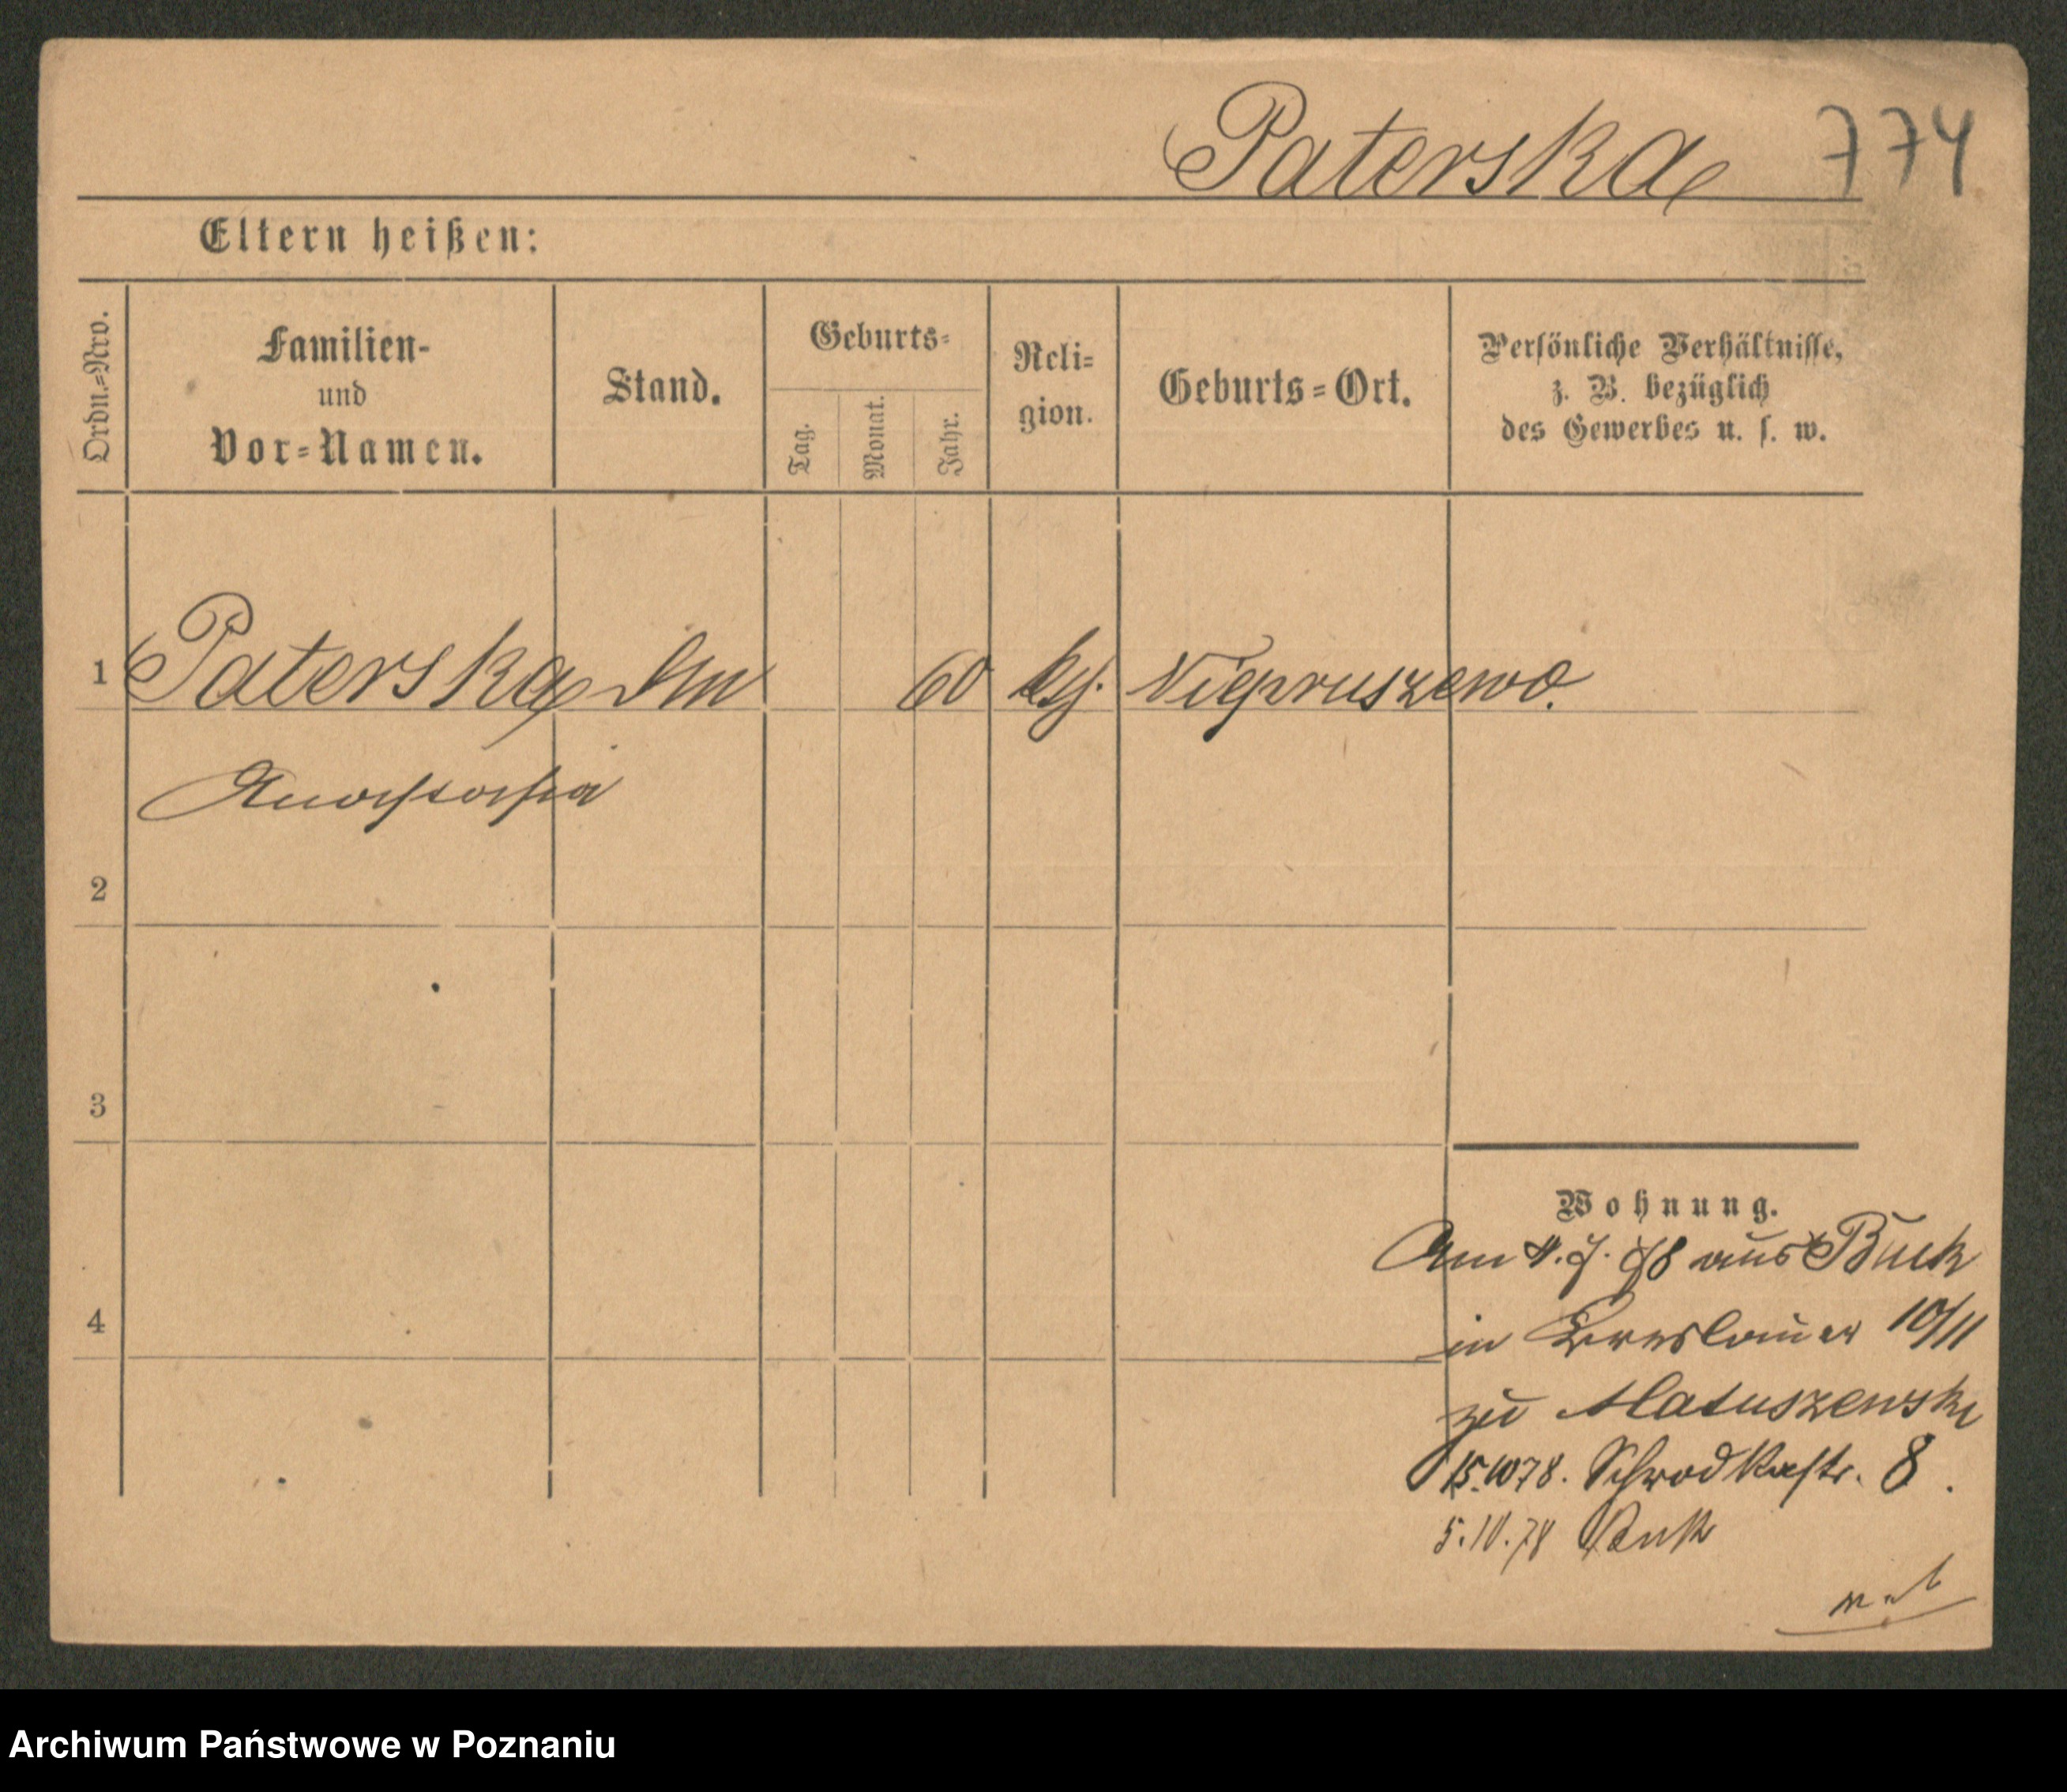 Paterska 774
Eltern heißen:
Ordn.=Nro.
Familien-
und
Vor=Namen.
Stand.
Geburts=
Tag.
Monat.
Jahr.
Reli=
gion.
Geburts=Ort.
Persönliche Verhältnisse,
z. B. bezüglich
des Gewerbes u. s. w.
1 Paterska 60 Niepruszewo.
Anastasia
2
3
4
Wohnung.
Am 4. 7. 78 aus Buck
in Breslauer 10/11
zu Matuszewski
15.10 78. Schrodkastr. 8.
5.10.78 Buk
Archiwum Państwowe w Poznaniu